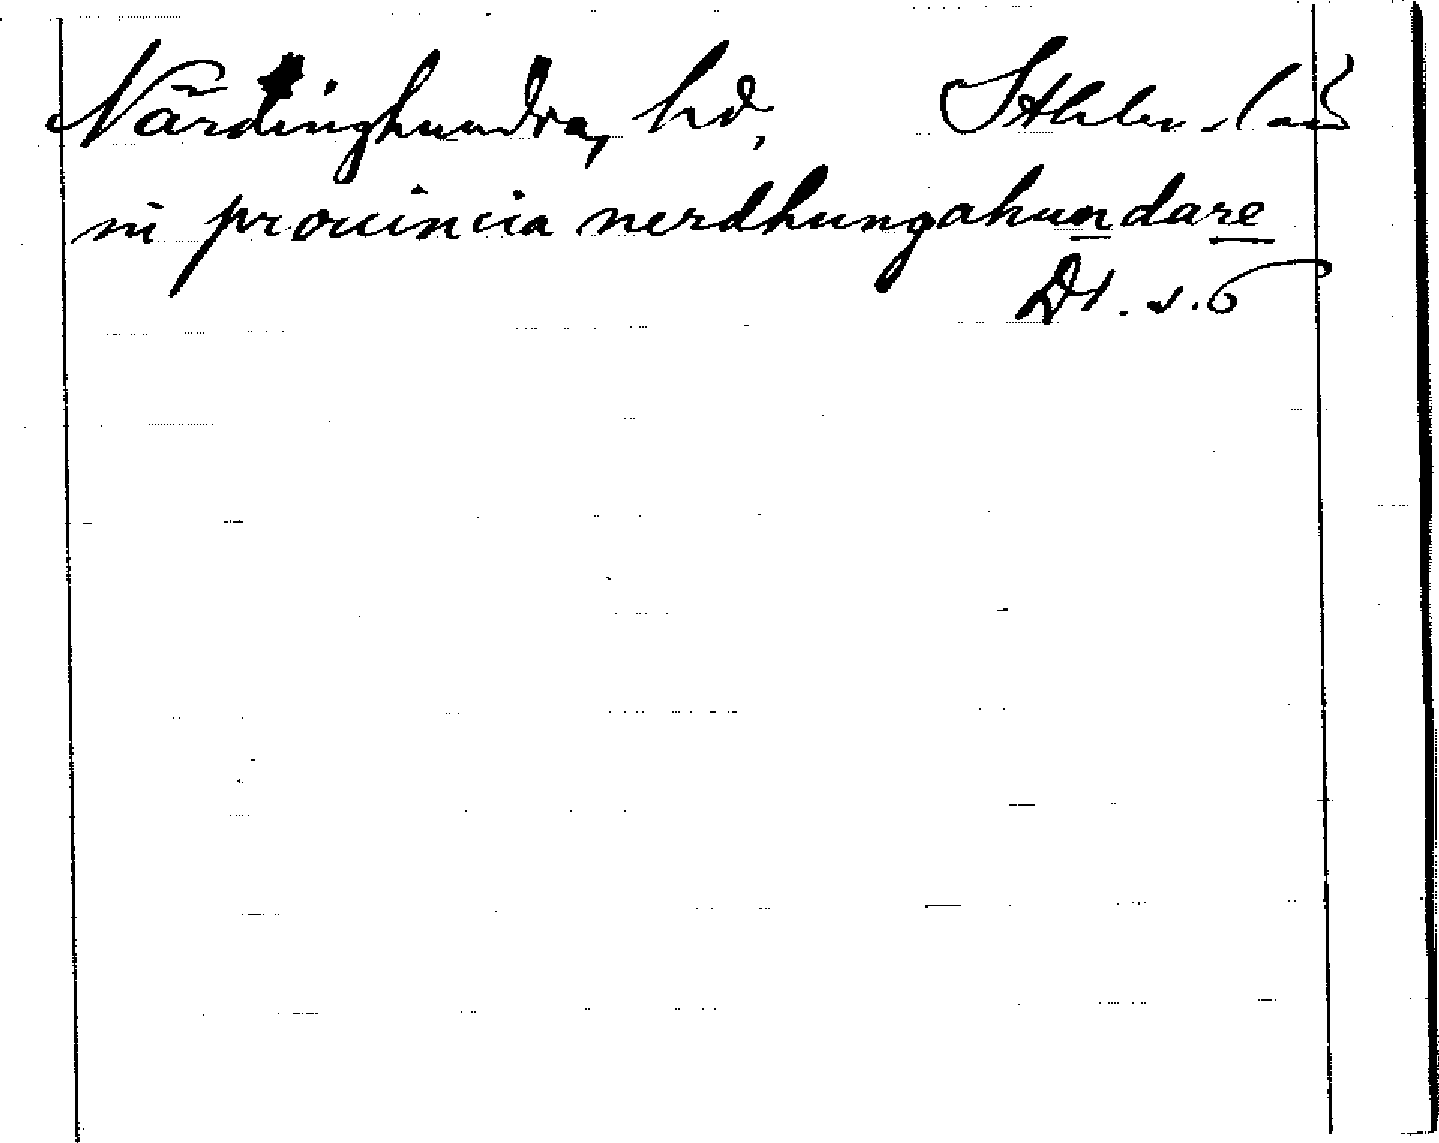 Närdinghundra, hd, Sthlms län
in prouincia nerdhungahundare
Dt. s. 6